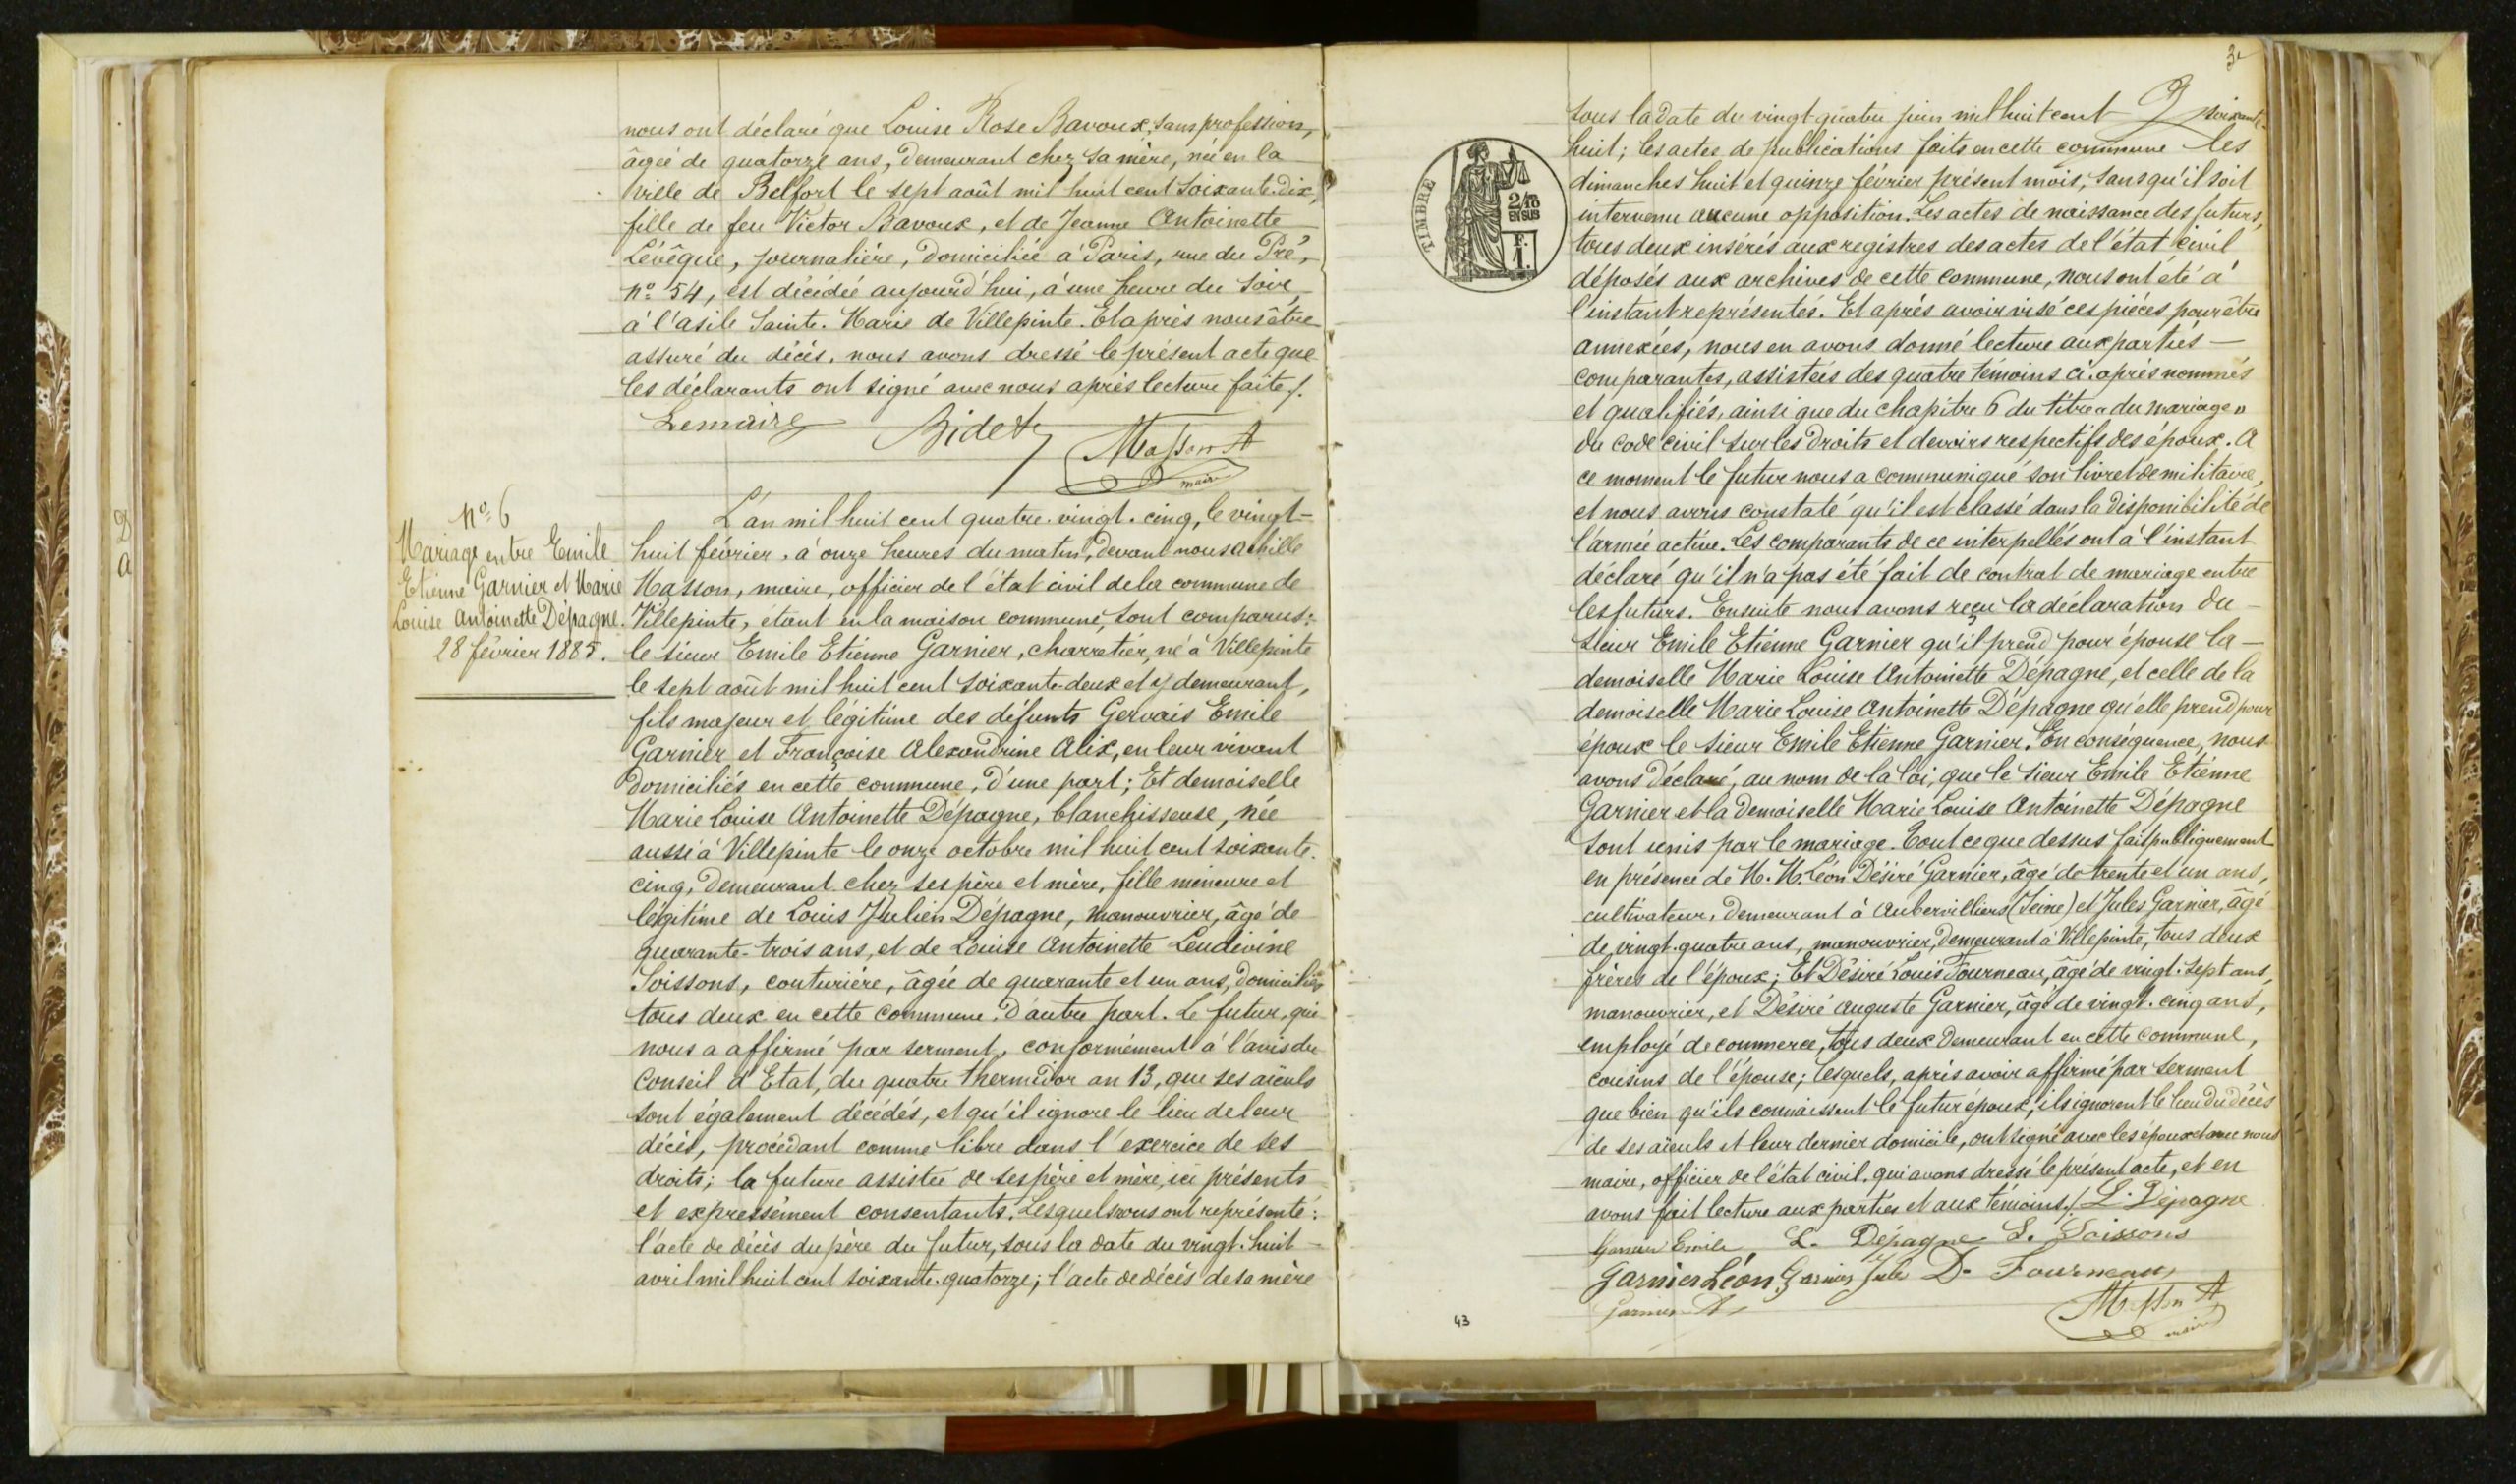 nous ont déclaré que Louise Rose Bavoux, sans profession,
âgée de quatorze ans, demeurant chez sa mère, née en la
ville de Belfort le sept août mil huit cent soixante-dix,
fille de feu Victor Bavoux, et de Jeanne Antoinette
Lévêque, journalière, domiciliée à Paris, rue du Pré,
n° 54, est décédée aujourd'hui, à une heure du soir,
à l'asile Sainte-Marie de Villepinte. Et après nous être
assuré du décès, nous avons dressé le présent acte que
les déclarants ont signé avec nous après lecture faite /.
Lemaire Bidet Masson A
maire
D
A
N° 6
Mariage entre Emile
Etienne Garnier et Marie
Louise Antoinette Dépagne.
28 février 1885.
L'an mil huit cent quatre-vingt-cinq, le vingt-
huit février, à onze heures du matin, devant nous Achille
Masson, maire, officier de l'état civil de la commune de
Villepinte, étant en la maison commune, sont comparus:
le sieur Emile Etienne Garnier, charretier, né à Villepinte
le sept août mil huit cent soixante-deux et y demeurant,
fils majeur et légitime des défunts Gervais Emile
Garnier et Françoise Alexandrine Alix, en leur vivant
domiciliés en cette commune, d'une part; Et demoiselle
Marie Louise Antoinette Dépagne, blanchisseuse, née
aussi à Villepinte le onze octobre mil huit cent soixante-
cinq, demeurant chez ses père et mère, fille mineure et
légitime de Louis Julien Dépagne, manouvrier, âgé de
quarante-trois ans, et de Louise Antoinette Leudivine
Soissons, couturière, âgée de quarante et un ans, domiciliés
tous deux en cette commune, d'autre part. Le futur, qui
nous a affirmé par serment, conformément à l'avis du
Conseil d'Etat, du quatre thermidor an 13, que ses aïeuls
sont également décédés, et qu'il ignore le lieu de leur
décès, procédant comme libre dans l'exercice de ses
droits; la future assistée de ses père et mère, ici présents
et expressément consentants. Lesquels nous ont représenté:
l'acte de décès du père du futur, sous la date du vingt-huit
avril mil huit cent soixante-quatorze; l'acte de décès de sa mère
3e
TIMBRE
2/10
EN SUS
F.
1.
sous la date du vingt-quatre juin mil huit cent soixante-
huit; les actes de publications faits en cette commune les
dimanches huit et quinze février présent mois, sans qu'il soit
intervenu aucune opposition. Les actes de naissance des futurs,
tous deux insérés aux registres des actes de l'état civil
déposés aux archives de cette commune, nous ont été à
l'instant représentés. Et après avoir visé ces pièces pour être
annexées, nous en avons donné lecture aux parties
comparantes, assistées des quatre témoins ci-après nommés
et qualifiés, ainsi que du chapitre 6 du titre « du mariage »
du code civil sur les droits et devoirs respectifs des époux. A
ce moment le futur nous a communiqué son livret de militaire,
et nous avons constaté qu'il est classé dans la disponibilité de
l'armée active. Les comparants de ce interpellés ont à l'instant
déclaré qu'il n'a pas été fait de contrat de mariage entre
les futurs. Ensuite nous avons reçu la déclaration du
sieur Emile Etienne Garnier qu'il prend pour épouse la
demoiselle Marie Louise Antoinette Dépagne, et celle de la
demoiselle Marie Louise Antoinette Dépagne qu'elle prend pour
époux le sieur Emile Etienne Garnier. En conséquence, nous
avons déclaré, au nom de la loi, que le sieur Emile Etienne
Garnier et la demoiselle Marie Louise Antoinette Dépagne
sont unis par le mariage. Tout ce que dessus fait publiquement
en présence de M. M. Léon Désiré Garnier, âgé de trente et un ans,
cultivateur, demeurant à Aubervilliers (Seine) et Jules Garnier, âgé
de vingt-quatre ans, manouvrier, demeurant à Villepinte, tous deux
frères de l'époux; Et Désiré Louis Fourneau, âgé de vingt-sept ans,
manouvrier, et Désiré Auguste Garnier, âgé de vingt-cinq ans,
employé de commerce, tous deux demeurant en cette commune,
cousins de l'épouse; lesquels, après avoir affirmé par serment
que bien qu'ils connaissent le futur époux, ils ignorent le lieu du décès
de ses aïeuls et leur dernier domicile, ont signé avec les époux et avec nous
maire, officier de l'état civil, qui avons dressé le présent acte, et en
avons fait lecture aux parties et aux témoins /. L. Dépagne
Garnier Emile L. Dépagne L. Soissons
Garnier Léon Garnier Jule D. Fourneau
Garnier A Masson A
maire
43